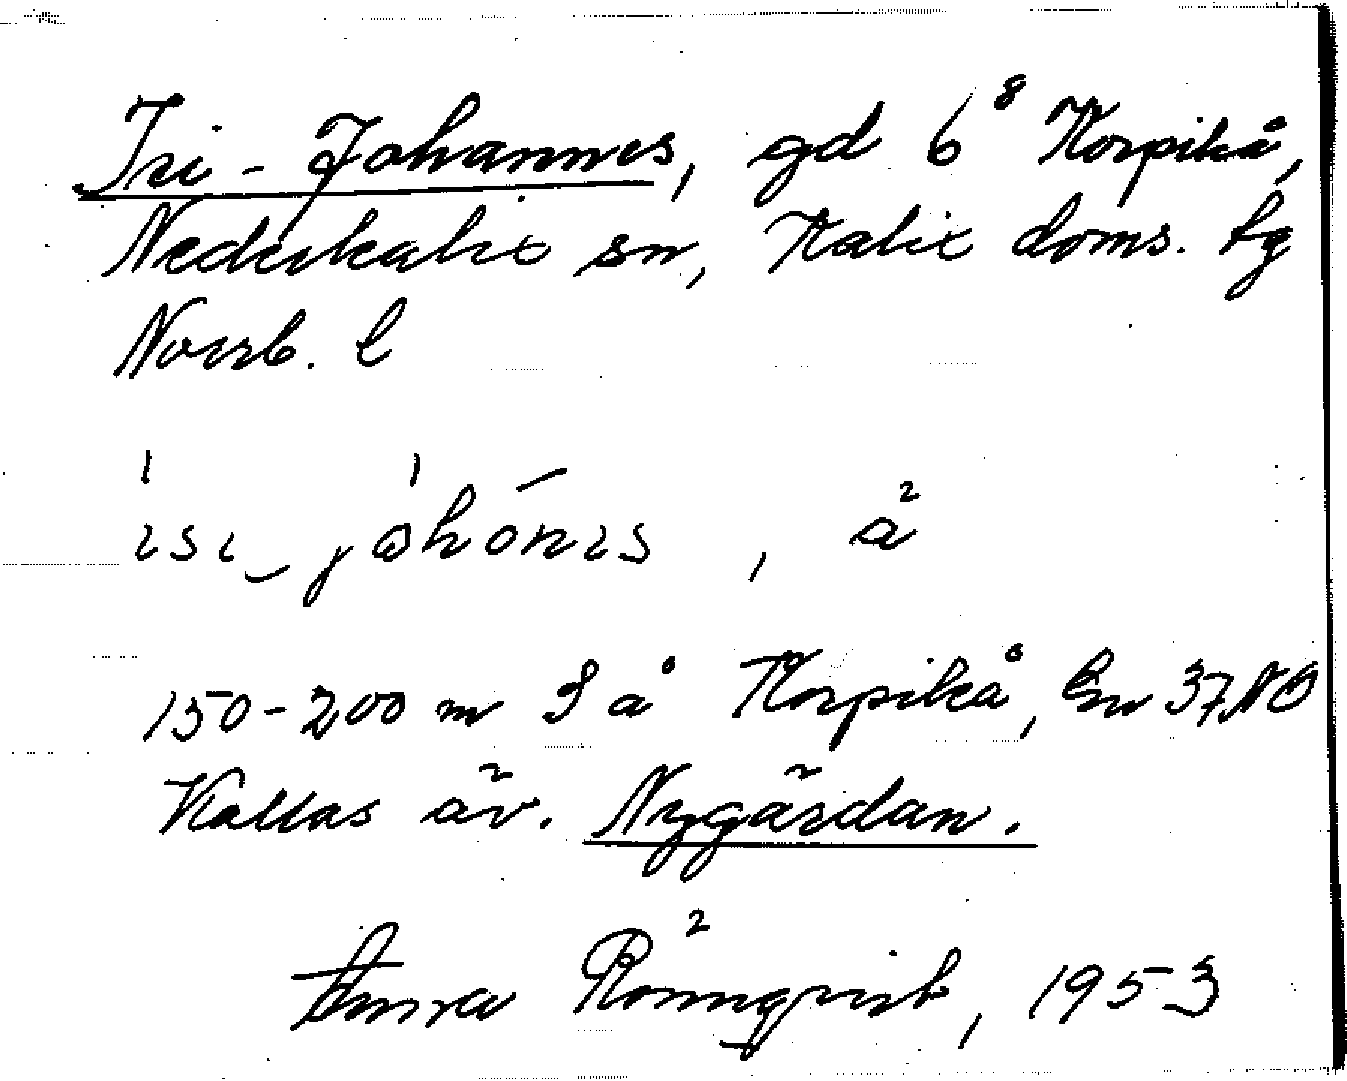 Isi-Johannes, gd 6⁸ Korpikå,
Nederkalix sn, Kalix doms. tg
Norrb. l
ısı_ jåhónıs, å²
150-200 m S å Korpikå, Gw 37NO
Kallas äv. Nygärdan.
Anna Rönnqvist, 1953